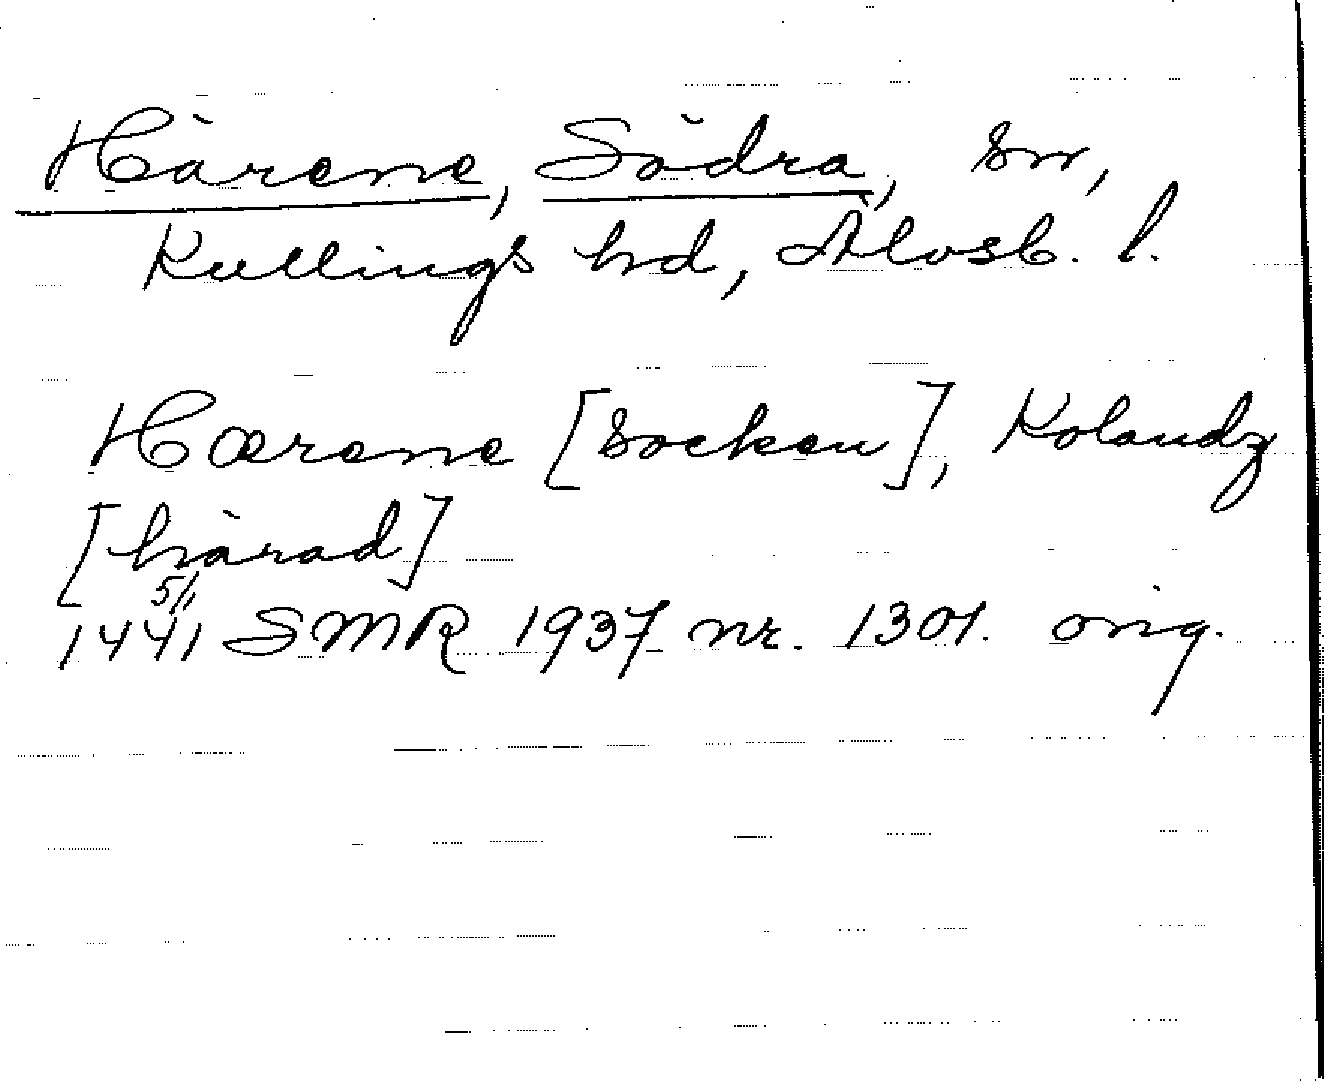 Härene, Södra, sn,
Kullings hd, Älvsb. l.
Hærene [socken], Kolandz
[härad]
5/1
1441 SMR 1937 nr. 1301. orig.